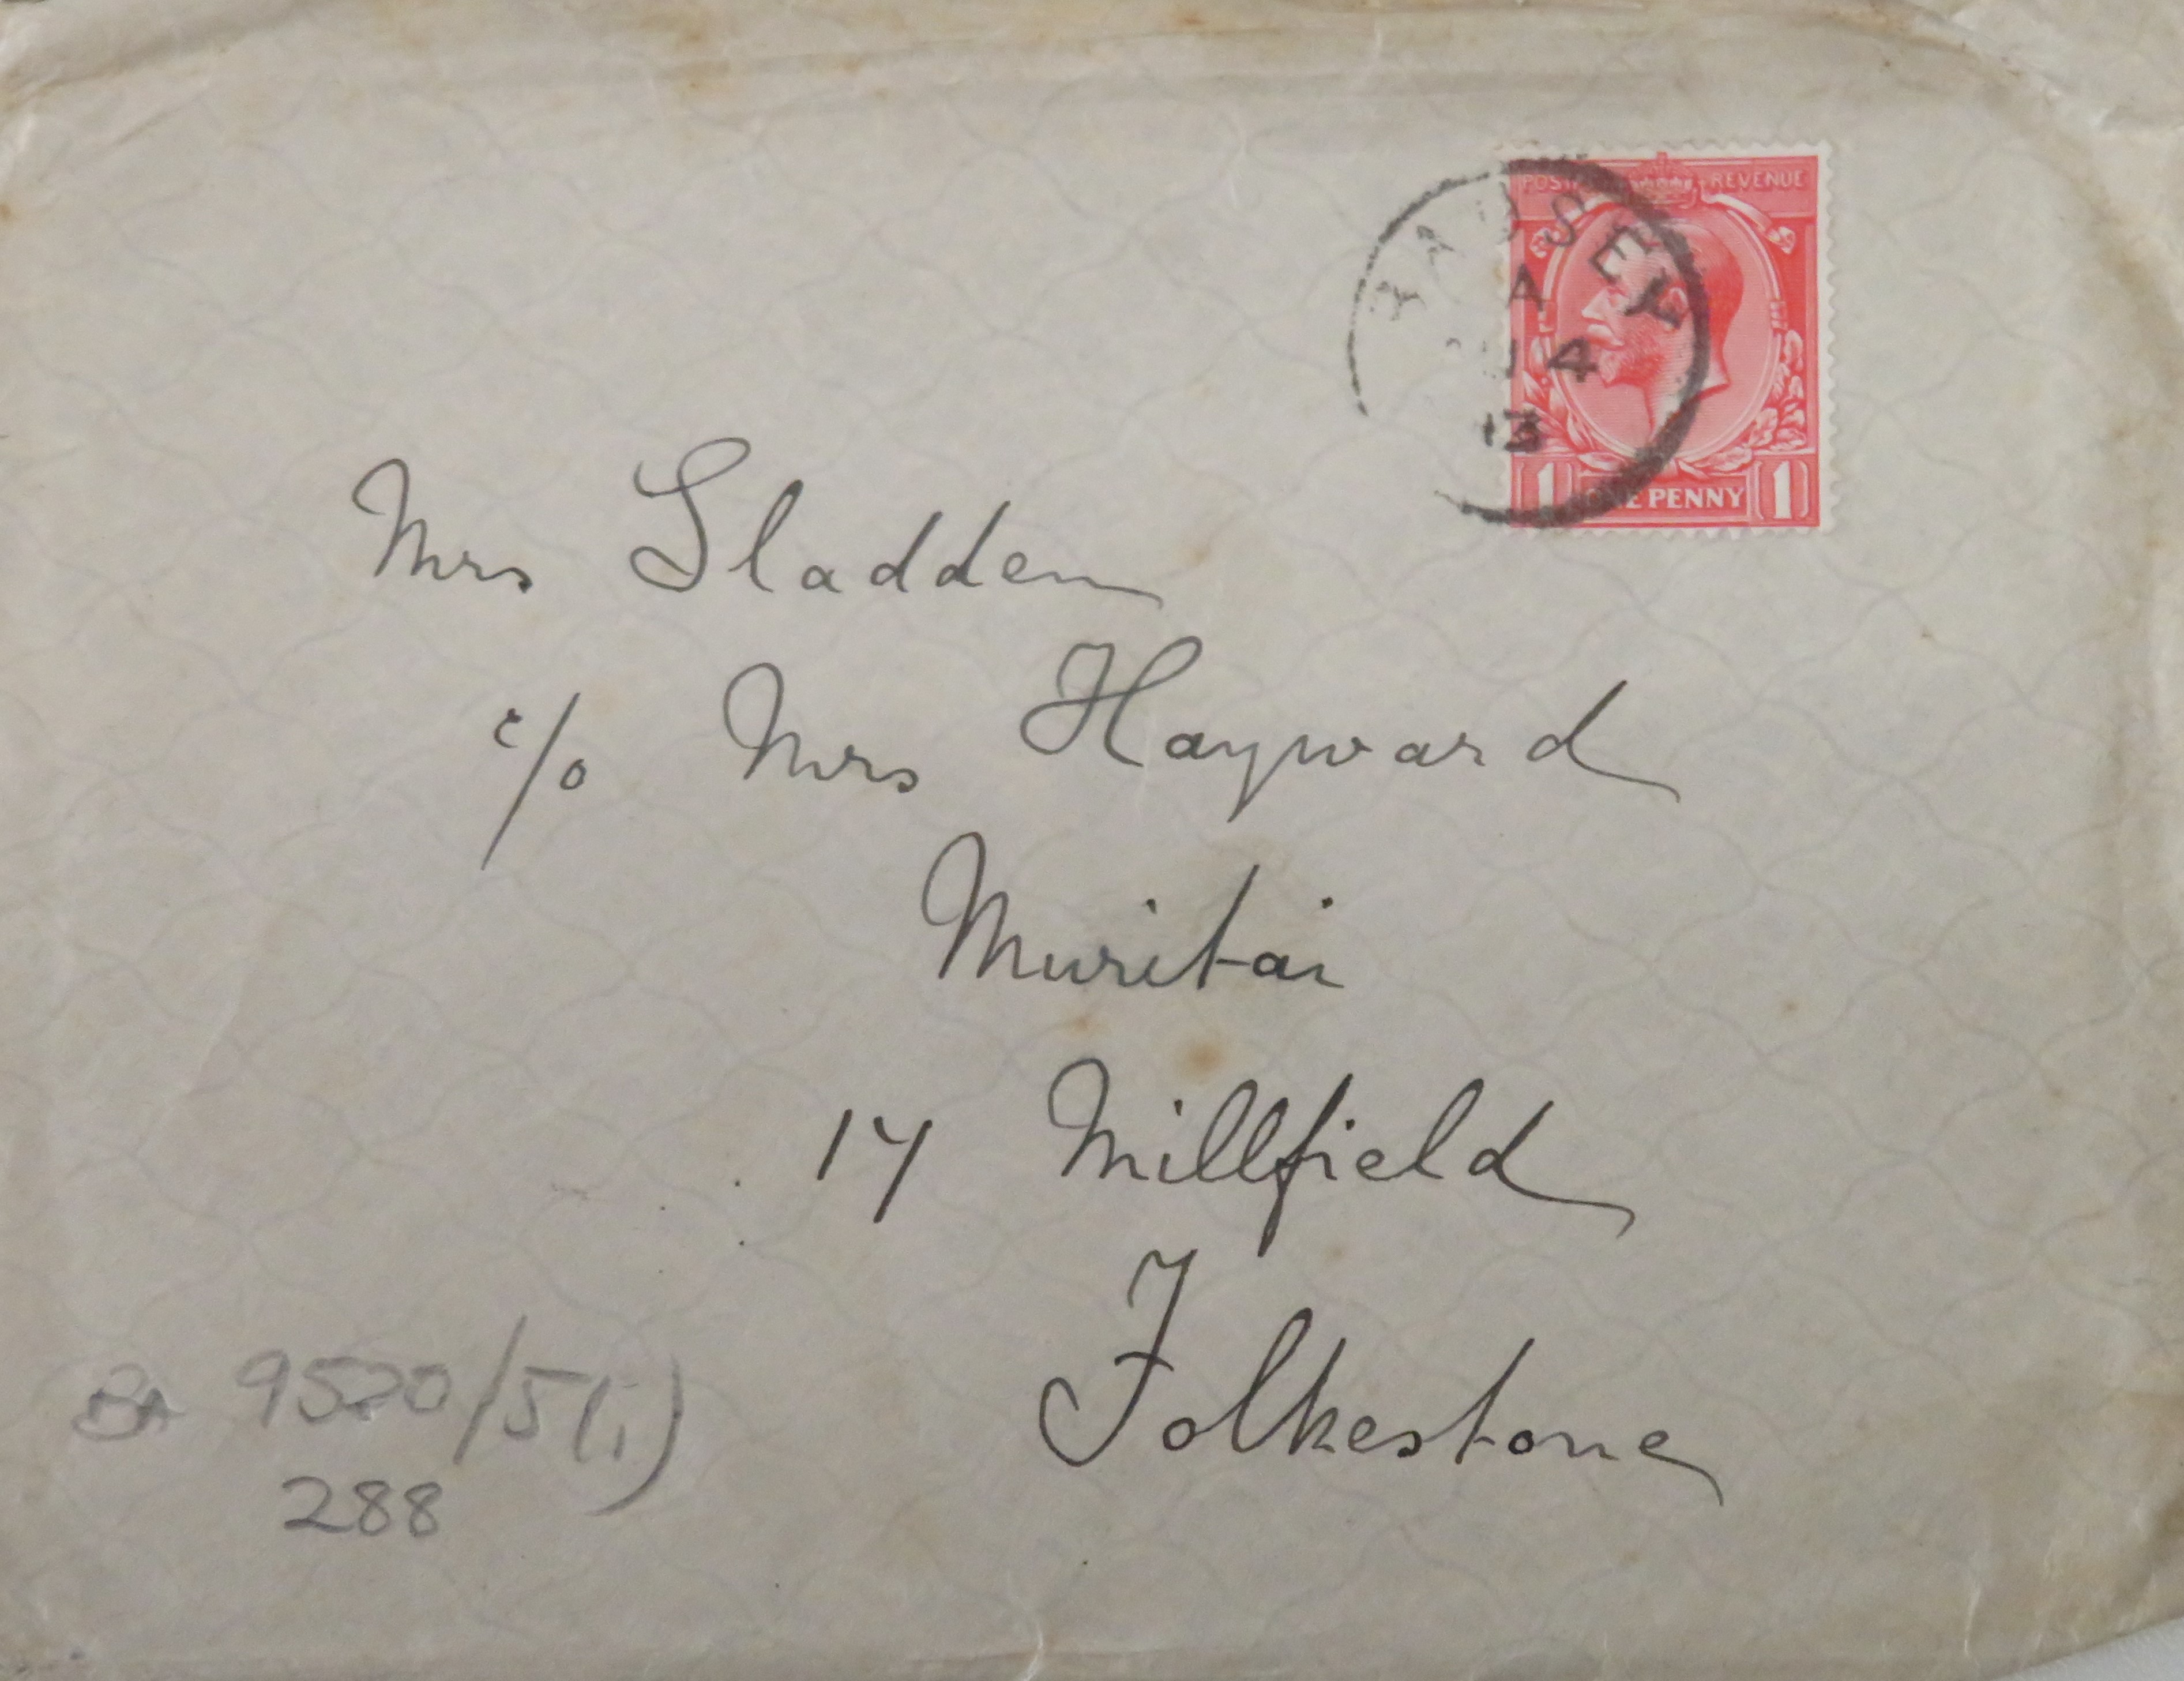 POSTAGE REVENUE
BADSEY
A
4
13
1 ONE PENNY 1
Mrs Sladden
c/o Mrs Hayward
Muritai
17 Millfield
Folkestone
BA 9520/5(i)
288